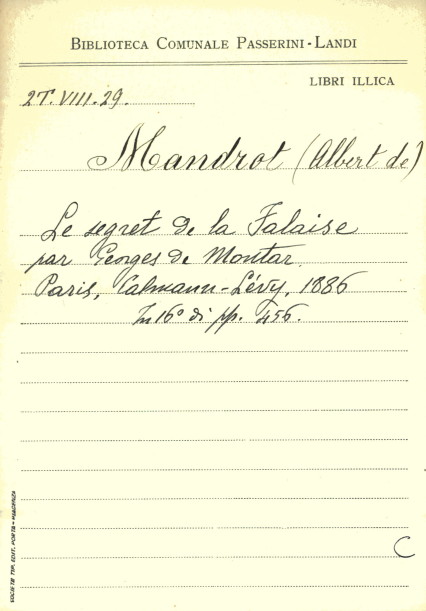 BIBLIOTECA COMUNALE PASSERINI-LANDI
LIBRI ILLICA
2T.VIII.29.
Mandrot (Albert de)
Le segret de la Falaise
par Georges de Montar
Paris, Calmann-Lévy, 1886
In 16° di pp. 456.
C
SOCIETÀ TIP. EDIT. PORTA - PIACENZA